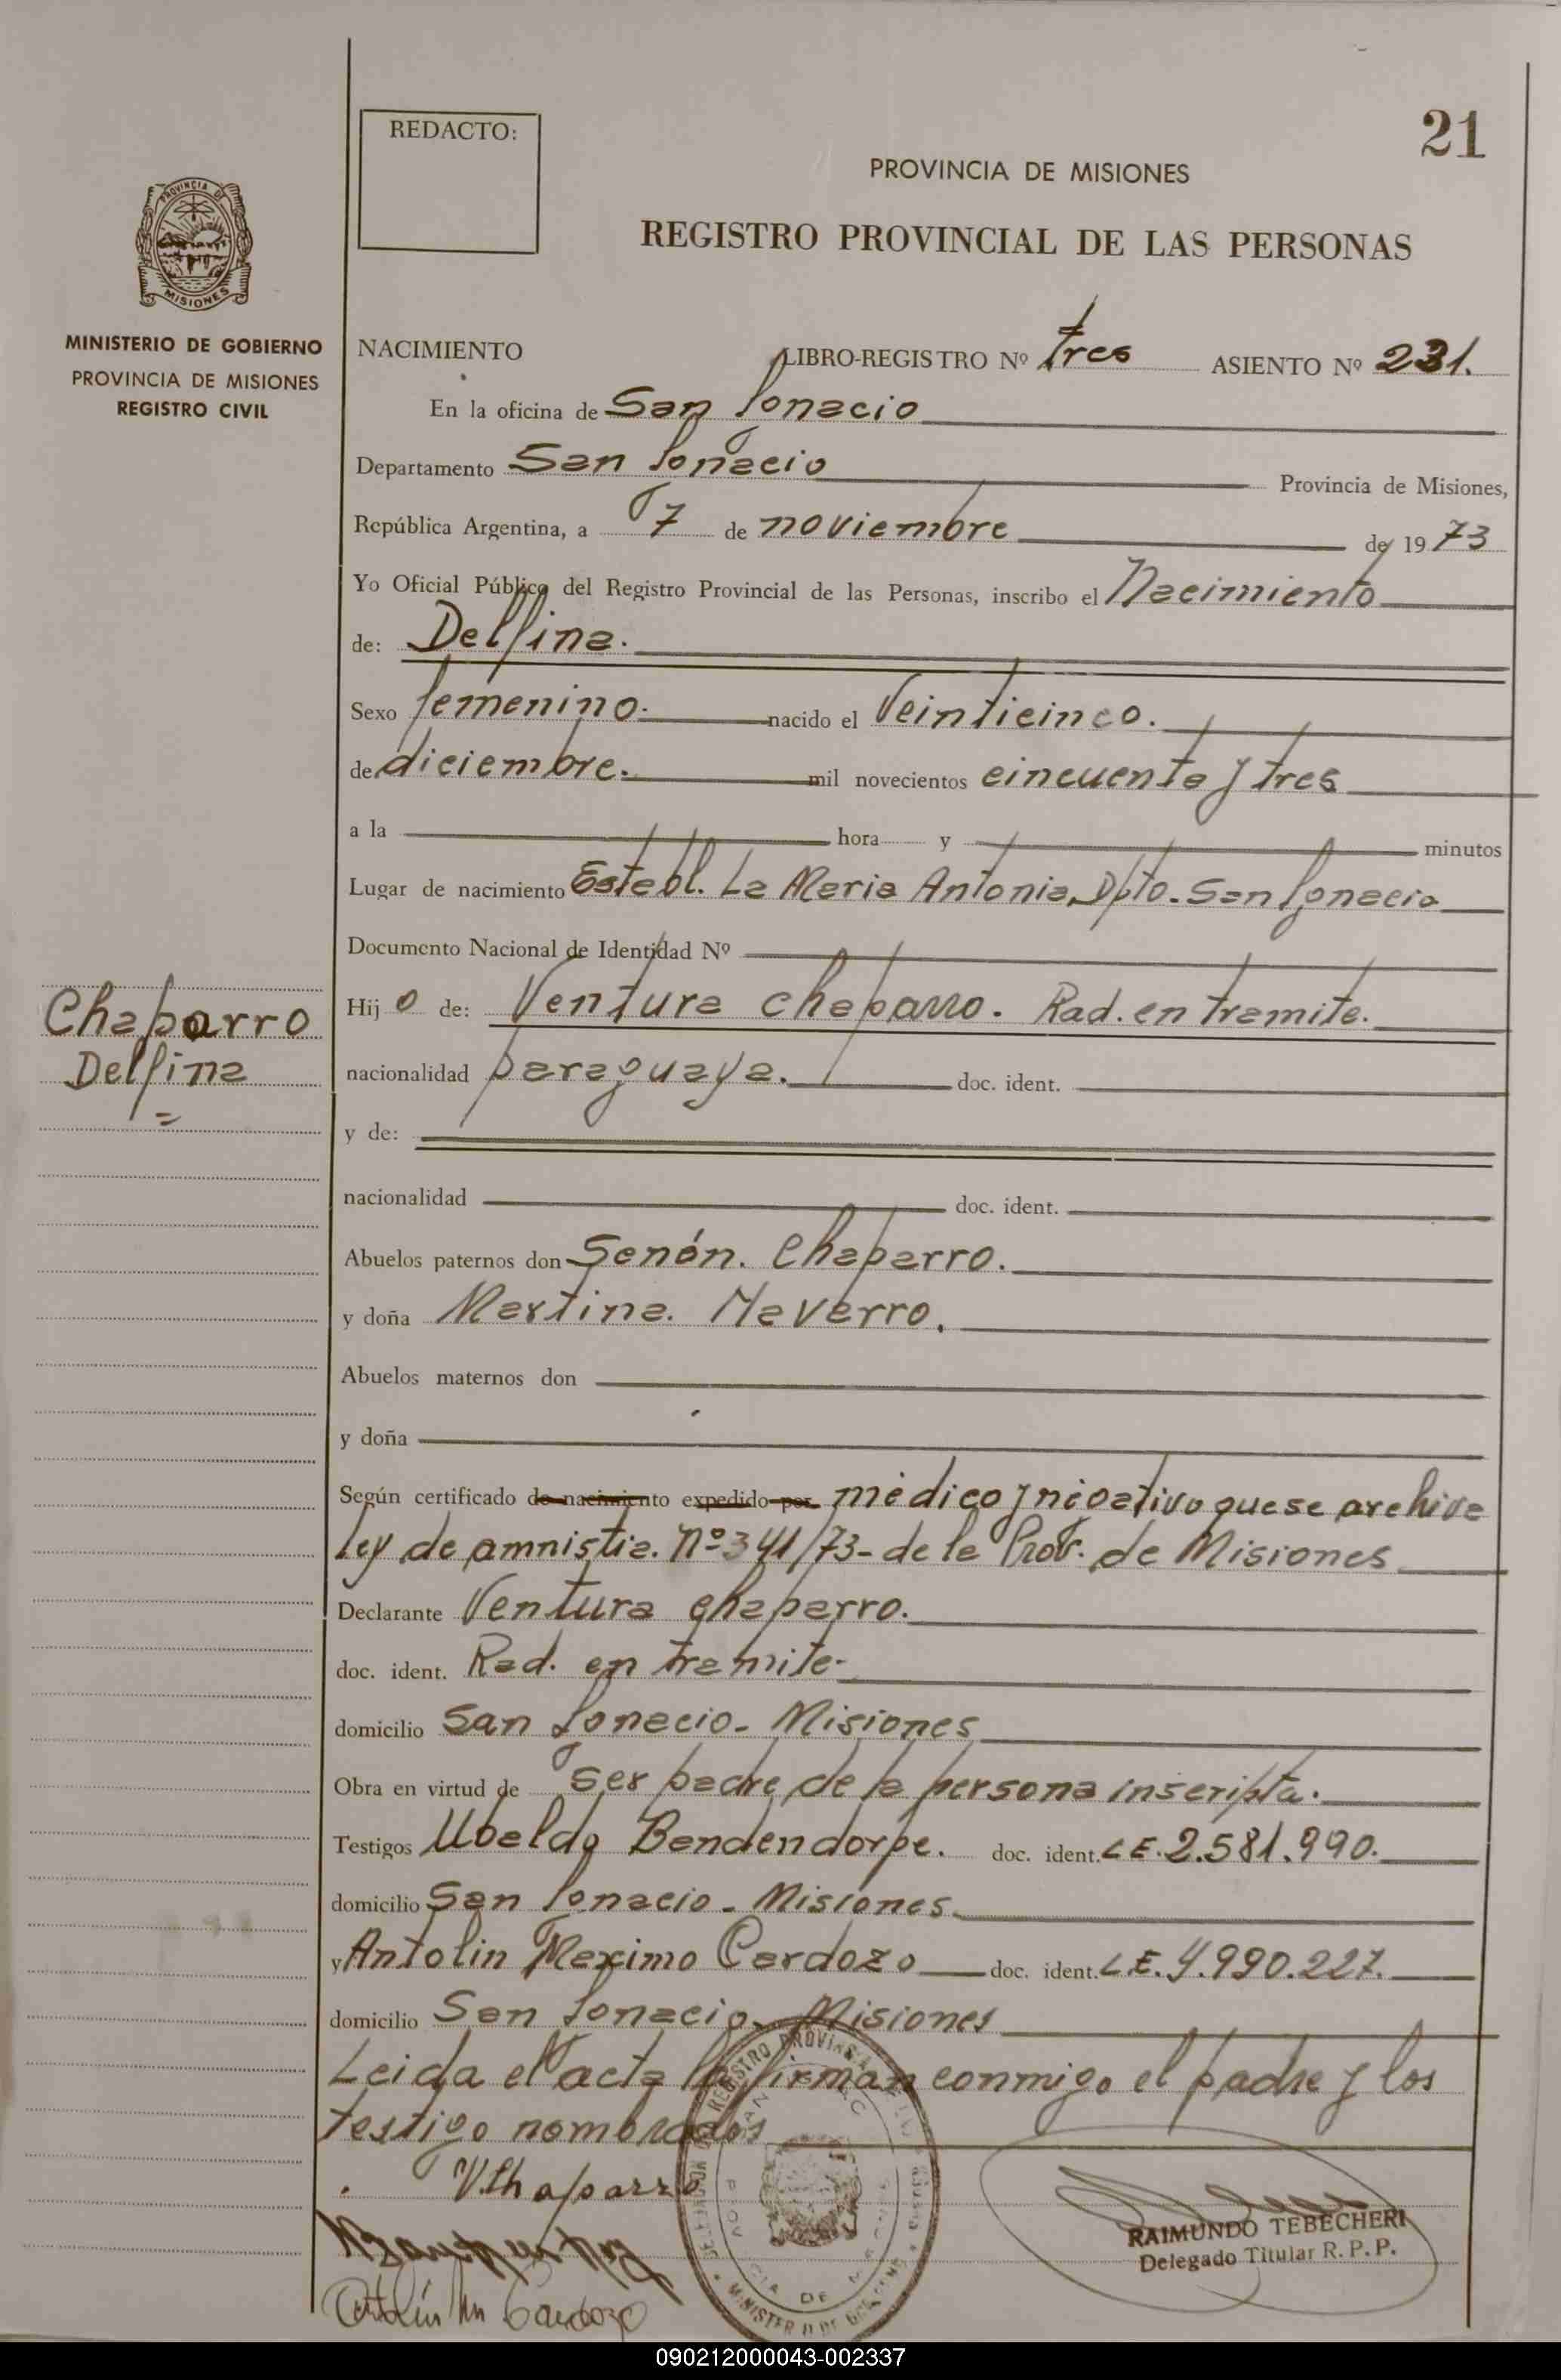 21
REDACTO:
PROVINCIA DE MISIONES
REGISTRO PROVINCIAL DE LAS PERSONAS
PROVINCIA DE
MISIONES
MINISTERIO DE GOBIERNO
PROVINCIA DE MISIONES
REGISTRO CIVIL
NACIMIENTO LIBRO-REGISTRO Nº tres ASIENTO Nº 231.
En la oficina de San Ignacio
Departamento San Ignacio Provincia de Misiones,
República Argentina, a 7 de noviembre de 1973
Yo Oficial Público del Registro Provincial de las Personas, inscribo el Nacimiento
de: Delfina.
Sexo femenino. nacido el Veinticinco.
de diciembre. mil novecientos cincuenta y tres
a la hora y minutos
Lugar de nacimiento Establ. La Maria Antonia, Dpto. San Ignacio
Documento Nacional de Identidad Nº
Chaparro
Delfina
Hijo de: Ventura Chaparro. Rad. en tramite.
nacionalidad paraguaya. doc. ident.
y de:
nacionalidad doc. ident.
Abuelos paternos don Senón. Chaparro.
y doña Martina. Navarro.
Abuelos maternos don
y doña
Según certificado de nacimiento expedido por médico y negativo que se archiva
ley de amnistia. Nº 341/73- de la Prov. de Misiones
Declarante Ventura Chaparro.
doc. ident. Rad. en tramite-
domicilio San Ignacio- Misiones
Obra en virtud de ser padre de la persona inscripta.
Testigos Ubaldo Bendendorpe. doc. ident. L E. 2.581.990.
domicilio San Ignacio - Misiones.
y Antolin Maximo Cardozo doc. ident. L.E. 4.990.227.
domicilio San Ignacio. Misiones
Leida el acta la firman conmigo el padre y los
testigo nombrados
V Chaparro
Antolín M Cardozo
RAIMUNDO TEBECHERI
Delegado Titular R. P. P.
090212000043-002337